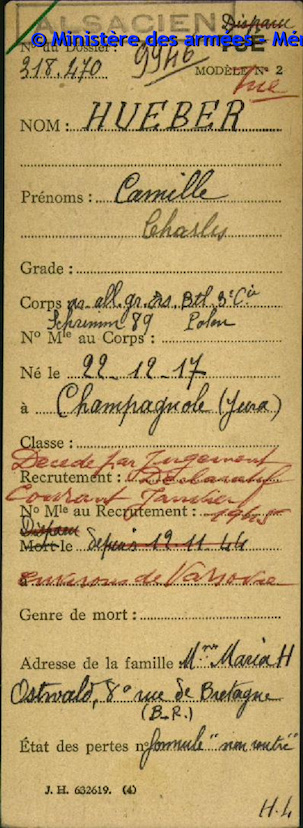 ALSACIEN
Disparu
© Ministère des armées - Mé
N° du Dossier :
318.470
9946
MODÈLE N° 2
NOM : HUEBER
Prénoms : Camille
Charles
Grade :
Corps all. gr. Ers. Btl 3e Cie
Schrimm 89 Polen
N° Mle au Corps :
Né le 22-12-17
à Champagnole (Jura)
Classe :
Décédé par Jugement
Recrutement : Déclaratif
Courant Janvier
N° Mle au Recrutement : 1945
Disparu
Mort le depuis 19.11.44
environs de Varsovie
Genre de mort :
Adresse de la famille : Mme Maria H
Ostwald, 8 rue de Bretagne
(B.R.)
État des pertes n° formule "non rentré"
J. H. 632619. (4)
H.L